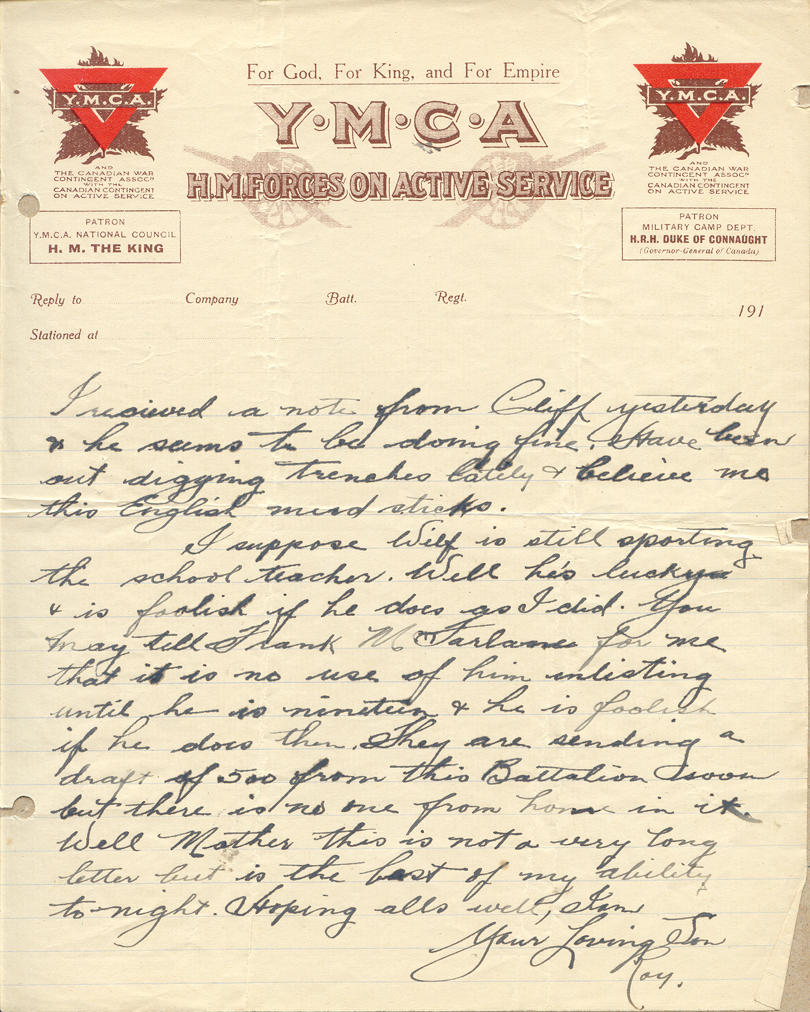 For God, For King, and For Empire
Y·M·C·A
H.M. FORCES ON ACTIVE SERVICE
Y.M.C.A.
AND
THE CANADIAN WAR
CONTINGENT ASSOCN
WITH THE
CANADIAN CONTINGENT
ON ACTIVE SERVICE
PATRON
Y.M.C.A. NATIONAL COUNCIL
H. M. THE KING
Y.M.C.A.
AND
THE CANADIAN WAR
CONTINGENT ASSOCN
WITH THE
CANADIAN CONTINGENT
ON ACTIVE SERVICE
PATRON
MILITARY CAMP DEPT.
H.R.H. DUKE OF CONNAUGHT
(Governor-General of Canada)
Reply to Company Batt. Regt.
191
Stationed at
I recieved a note from Cliff yesterday
& he seems to be doing fine. Have been
out digging trenches lately & believe me
this English mud sticks.
I suppose Wilf is still sporting
the school teacher. Well he's lucky
& is foolish if he does as I did. You
may tell Frank McFarlane for me
that it is no use of him enlisting
until he is nineteen & he is foolish
if he does then. They are sending a
draft of 500 from this Battalion soon
but there is no one from home in it.
Well Mother this is not a very long
letter but is the best of my ability
to-night. Hoping alls well, I'm
Your Loving Son
Roy.